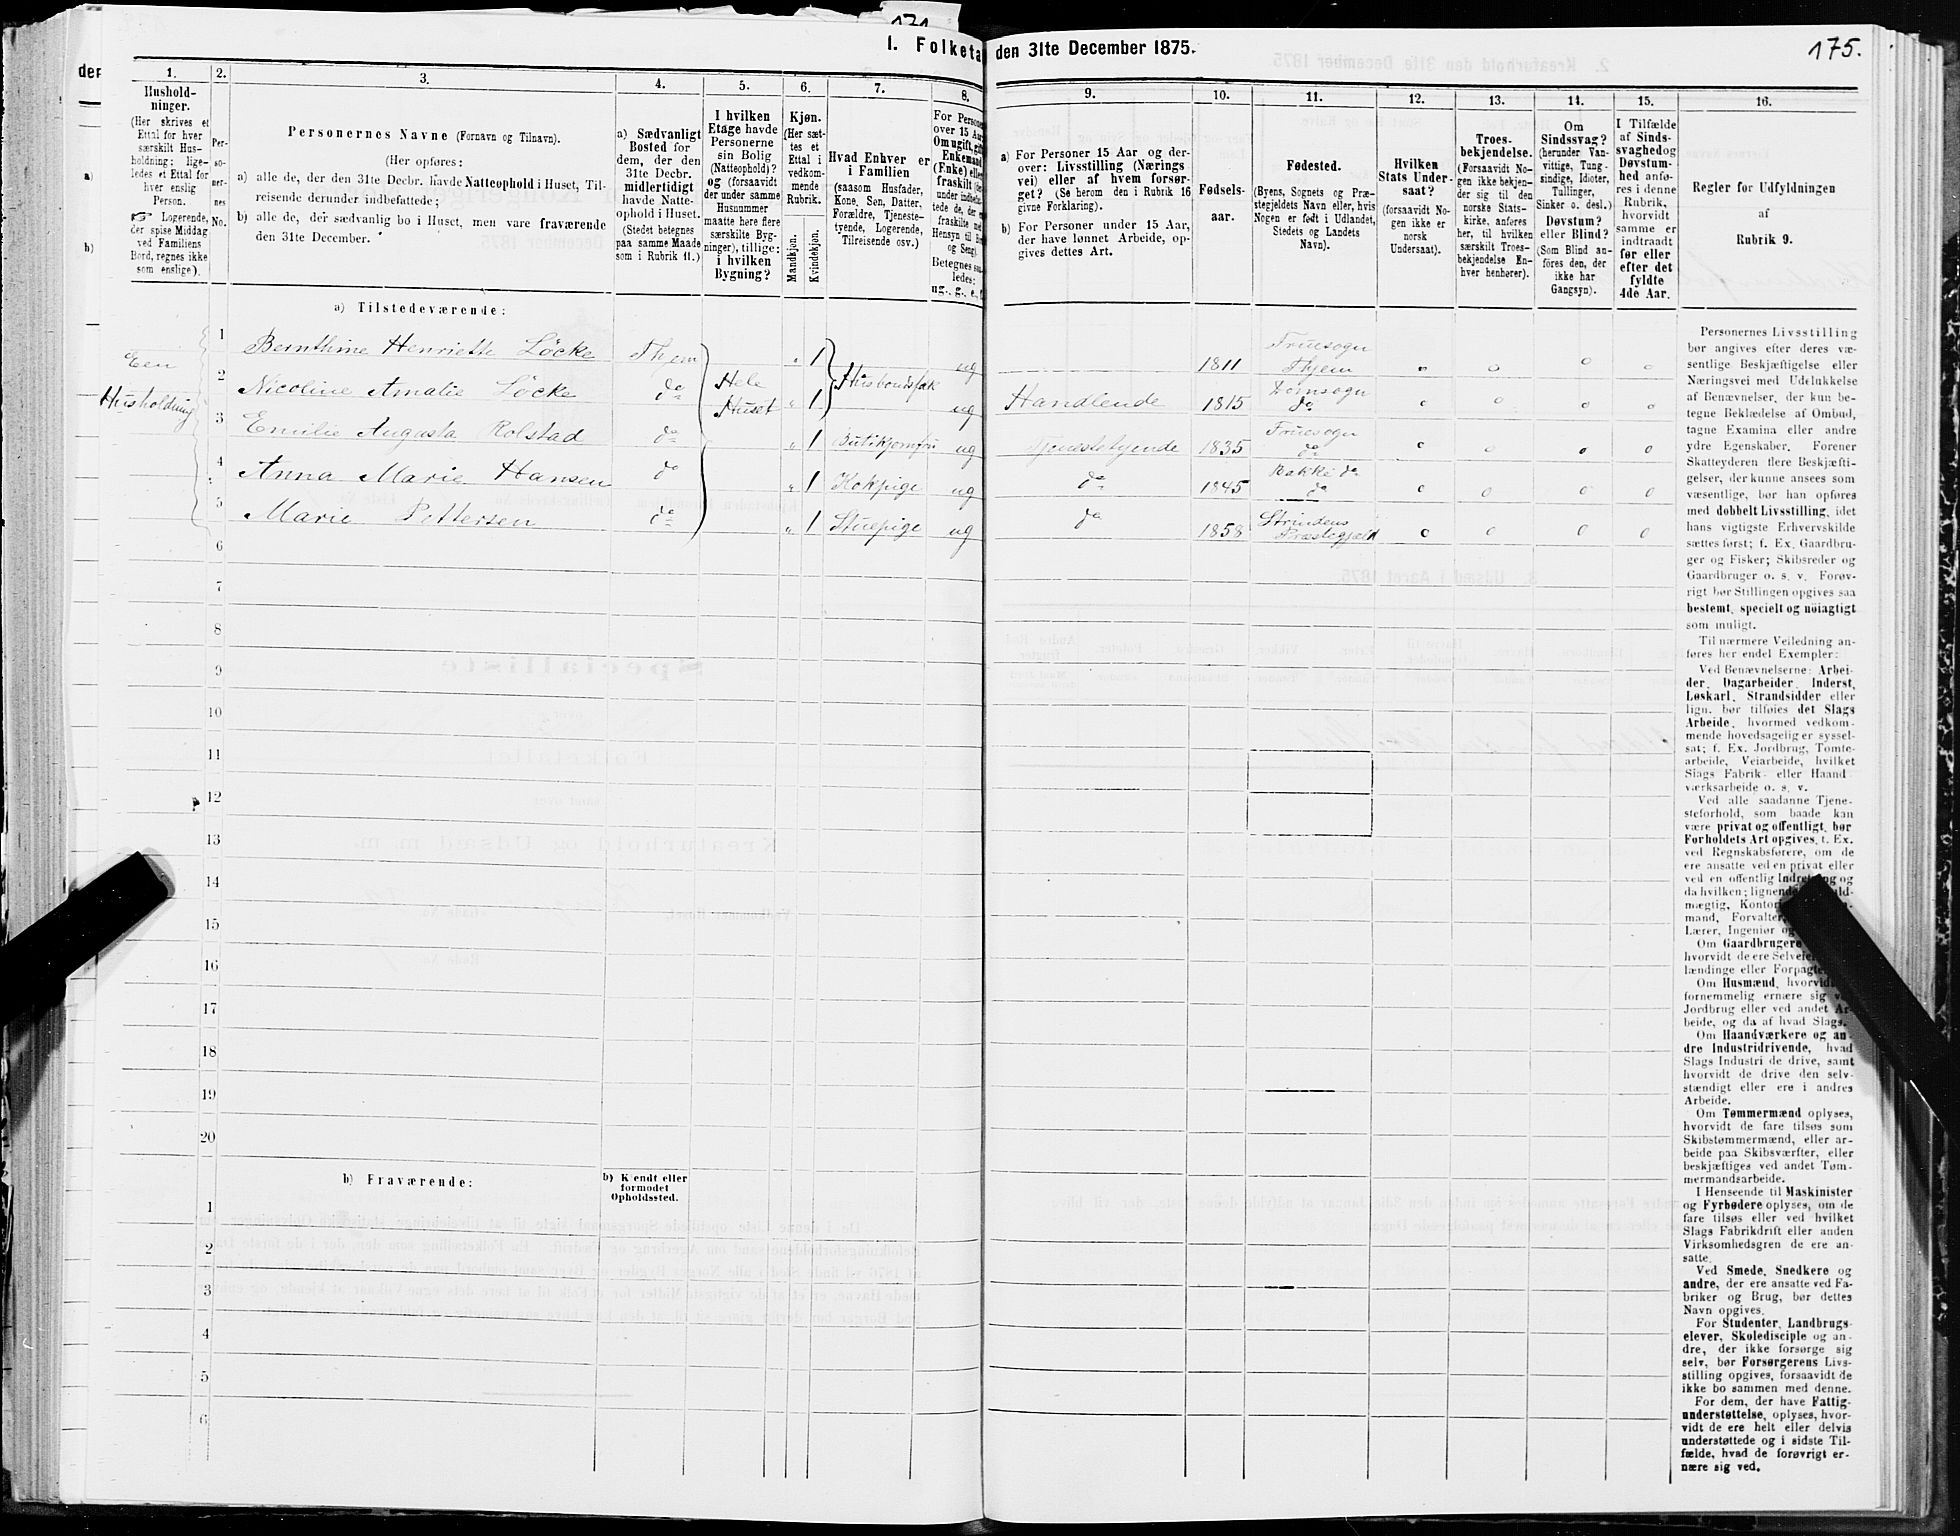 171
I. Folketa
den 31te December 1875.
175.
1.
2.
3.
4.
5.
6.
7.
8.
9.
10.
11.
12.
13.
14.
15.
16.
Hushold-
ninger.
(Her skrives et
Ettal for hver
særskilt Hus-
holdning; lige-
ledes et Ettal for
hver enslig
Person.
☞ Logerende,
der spise Middag
ved Familiens
Bord, regnes ikke
som enslige).
Per-
so-
ner-
nes
No.
Personernes Navne (Fornavn og Tilnavn).
(Her opføres:
a) alle de, der den 31te Decbr. havde Natteophold i Huset, Til-
reisende derunder indbefattede;
b) alle de, der sædvanlig bo i Huset, men vare fraværende
den 31te December.
a) Sædvanligt
Bosted for
dem, der den
31te Decbr.
midlertidigt
havde Natte-
ophold i Huset.
(Stedet betegnes
paa samme Maade
som i Rubrik 11.)
I hvilken
Etage havde
Personerne
sin Bolig
(Natteophold)?
og (forsaavidt
der under samme
Husnummer
maatte høre flere
særskilte Byg-
ninger), tillige:
i hvilken
Bygning?
Kjøn.
(Her sæt-
tes et
Ettal i
vedkom-
mende
Rubrik.
Mandkjøn.
Kvindekjøn.
Hvad Enhver er
i Familien
(saasom Husfader,
Kone, Søn, Datter,
Forældre, Tjeneste-
tyende, Logerende,
Tilreisende osv.)
For Persone
over 15 Aar
Om ugift, gift
Enkemand
(Enke) eller
fraskilt
under indbefat-
tede de, der
fraskilte
Hensyn til
og Seng).
Betegnes saa-
ledes:
ug., g., e.,
a) For Personer 15 Aar og der-
over: Livsstilling (Nærings-
vei) eller af hvem forsør-
get? (Se herom den i Rubrik 16
givne Forklaring).
b) For Personer under 15 Aar,
der have lønnet Arbeide, op-
gives dettes Art.
Fødsels-
aar.
Fødested.
(Byens, Sognets og Præ-
stegjeldets Navn eller, hvis
Nogen er født i Udlandet,
Stedets og Landets
Navn).
Hvilken
Stats Under-
saat?
(forsaavidt No-
gen ikke er
norsk
Undersaat).
Troes-
bekjendelse.
(Forsaavidt No-
gen ikke bekjen-
der sig til den
norske Stats-
kirke, anføres
her, til hvilken
særskilt Troes-
bekjendelse En-
hver henhører).
Om
Sindssvag?
(herunder Van-
vittige, Tung-
sindige, Idioter,
Tullinger,
Sinker o. desl.)
Døvstum?
eller Blind?
(Som Blind an-
føres den, der
ikke har
Gangsyn).
I Tilfælde
af Sinds-
svaghed og
Døvstum-
hed anfø-
res i denne
Rubrik,
hvorvidt
samme er
indtraadt
før eller
efter det
fyldte
4de Aar.
Regler for Udfyldningen
af
Rubrik 9.
a) Tilstedeværende:
Een
Husholdning
1 Bernthine Henriette Löcke Thjem 1 ug 1811 Fruesogn Thjem 0 0 0 0
2 Nicoline Amalie Löcke do Hele Huset 1 ug Handlende 1815 Domsogn do 0 0 0 0
3 Emilie Augusta Rolstad do 1 ug Tjenestetyende 1835 Fruesogn do 0 0 0 0
4 Anna Marie Hansen do 1 Kokpige ug do 1845 Bakke do do 0 0 0 0
5 Marie Pettersen do 1 Stuepige ug do 1858 Strindens Præstegjæld 0 0 0 0
6
7
8
9
10
11
12
13
14
15
16
17
18
19
20
b) Fraværende:
b) Kjendt eller
formodet
Opholdssted.
1
2
3
4
5
6
Personernes Livsstilling
bør angives efter deres væ-
sentlige Beskjæftigelse eller
Næringsvei med Udelukkelse
af Benævnelser, der kun be-
tegne Beklædelse af Ombud,
tagne Examina eller andre
ydre Egenskaber. Forener
Skatteyderen flere Beskjæfti-
gelser, der kunne ansees som
væsentlige, bør han opføres
med dobbelt Livsstilling, idet
hans vigtigste Erhvervskilde
sættes først; f. Ex. Gaardbru-
ger og Fisker; Skibsreder og
Gaardbruger o. s. v. Forøv-
rigt bør Stillingen opgives saa
bestemt, specielt og nöiagtigt
som muligt.
Til nærmere Veiledning an-
føres her endel Exempler:
Ved Benævnelserne: Arbei-
der, Dagarbeider, Inderst,
Løskarl, Strandsidder eller
lign. bør tilføies det Slags
Arbeide, hvormed vedkom-
mende hovedsagelig er syssel-
sat; f. Ex. Jordbrug, Tomte-
arbeide, Veiarbeide, hvilket
Slags Fabrik- eller Haand-
værksarbeide o. s. v.
Ved alle saadanne Tjene-
steforhold, som baade kan
være privat og offentligt, bør
Forholdets Art opgives, f. Ex.
ved Regnskabsførere, om de
ere ansatte ved en privat eller
ved en offentlig Indretning og
da hvilken; lignende
mægtig,
mand, Forvalter,
Lærer, Ingeniør
Om Gaardbrugere
hvorvidt de ere Selveiere,
lændinge eller
Om Husmænd,
fornemmelig ernære sig
Jordbrug eller ved andet Ar-
beide, og da af hvad Slags.
Om Haandværkere og an-
dre Industridrivende, hvad
Slags Industri de drive, samt
hvorvidt de drive den selv-
stændigt eller ere i andres
Arbeide.
Om Tømmermænd oplyses,
hvorvidt de fare tilsøs som
Skibstømmermænd, eller ar-
beide paa Skibsværfter, eller
beskjæftiges ved andet Tøm-
mermandsarbeide.
I Henseende til Maskinister
og Fyrbødere oplyses, om de
fare tilsøs eller ved hvilket
Slags Fabrikdrift eller anden
Virksomhedsgren de ere an-
satte.
Ved Smede, Snedkere og
andre, der ere ansatte ved Fa-
briker og Brug, bør dettes
Navn opgives.
For Studenter, Landbrugs-
elever, Skoledisciple og an-
dre, der ikke forsørge sig
selv, bør Forsørgerens Livs-
stilling opgives, forsaavidt de
ikke bo sammen med denne.
For dem, der have Fattig-
understøttelse, oplyses, hvor-
vidt de ere helt eller delvis
understøttede og i sidste Til-
fælde, hvad de forøvrigt er-
nære sig ved.